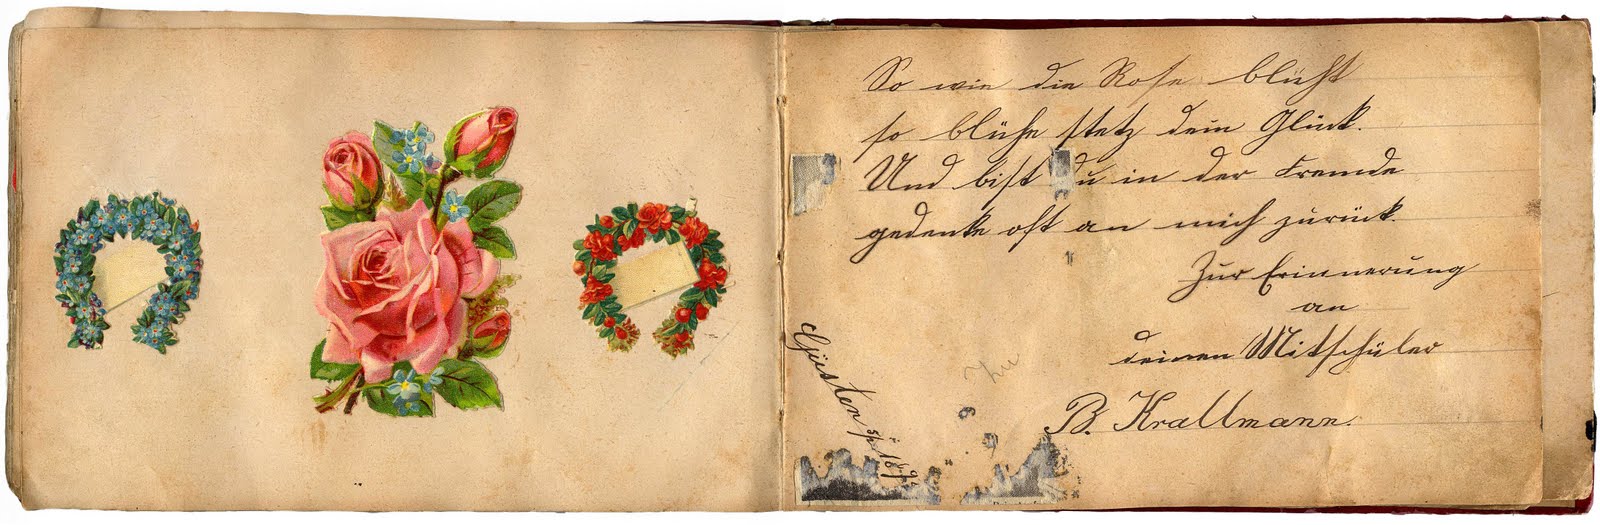 So wie die Rose blüht
so blühe stetz dein Glück.
Und bist du in der Fremde
gedenke oft an mich zurück.
Zur Erinnerung
an
deinen Mitschüler
B. Krallmann.
Güsten